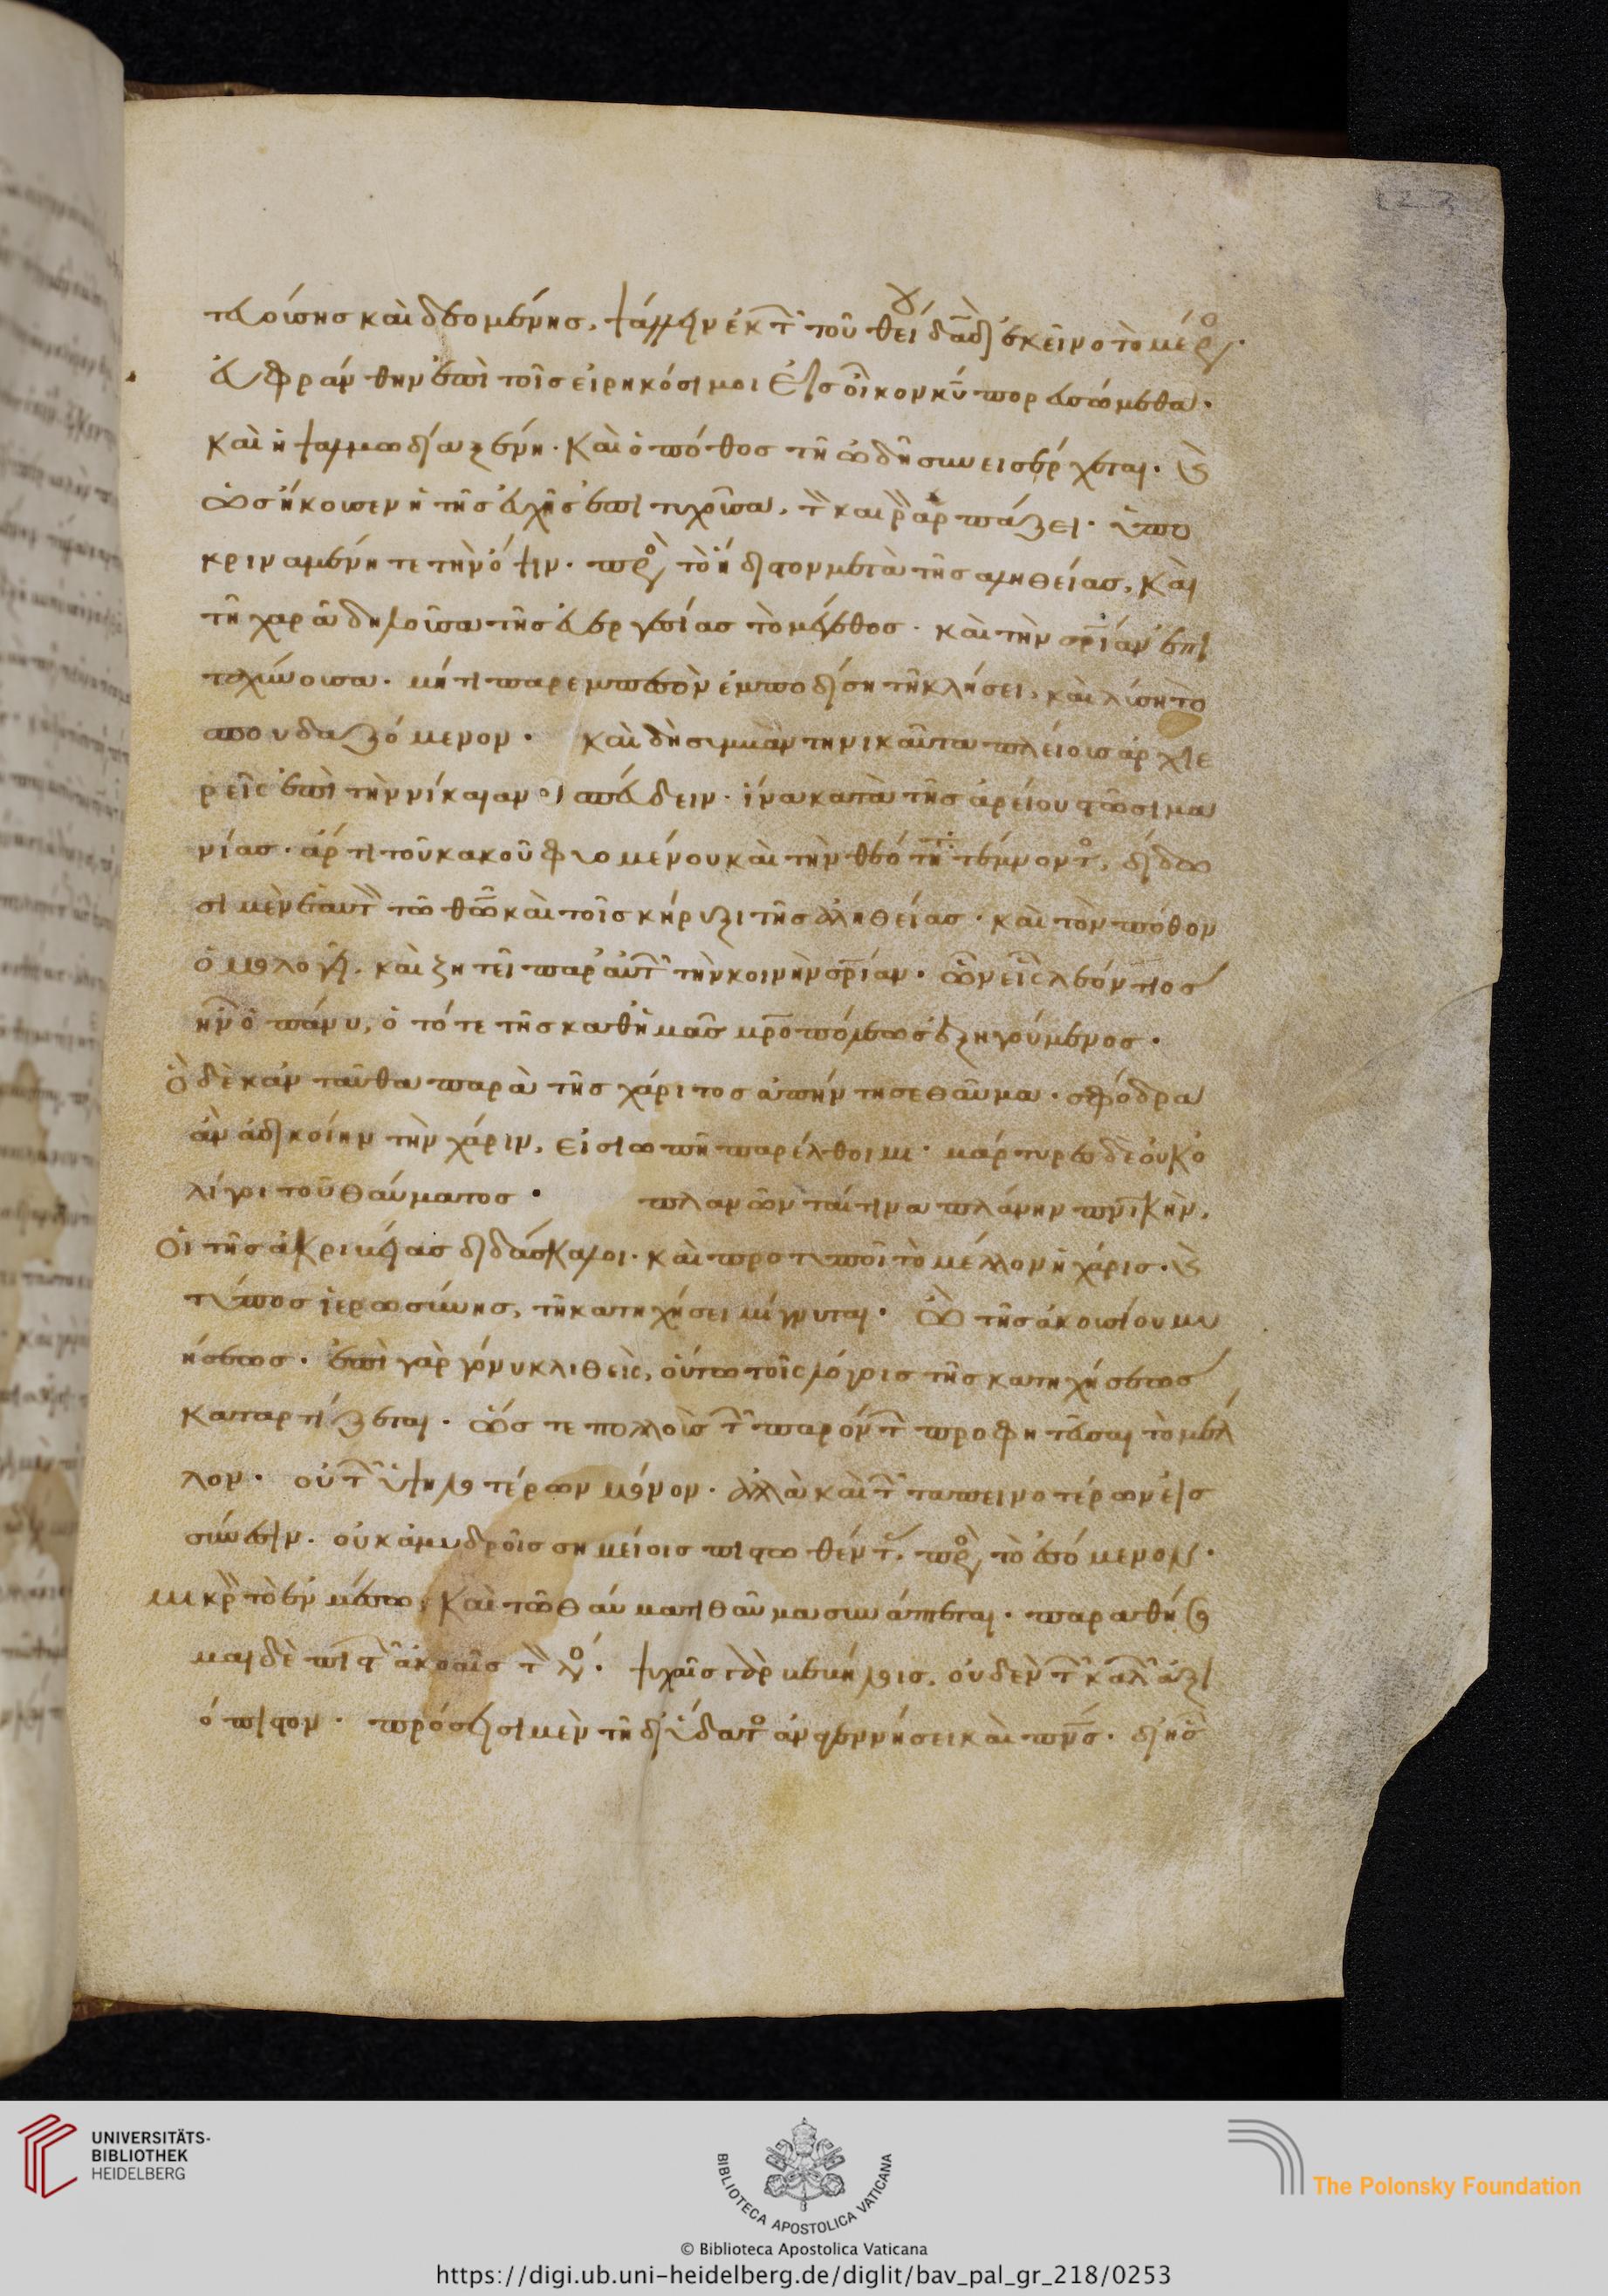 τευούσης καὶ δεομένης, ψάλλειν ἐκ τῶν τοῦ θείου δαδ ἐκεῖνο τὸ μέρος.
εὐφράνθην ἐπὶ τοῖς εἰρηκόσι μοι εἰς οἶκον κῡ πορευσώμεθα.
καὶ ἡ ψαλμωδία ξένη. καὶ ὁ πόθος τῇ ὠδῇ συνεισέρχεται. καὶ
ὡς ἤκουσεν ἡ τῆς εὐχῆς ἐπιτυχοῦσα, τὸν καιρὸν ἁρπάζει. ὑπο
κριναμένη τε τὴν ὄψιν. πρὸς τὸ ἥδιστον μετὰ τῆς ἀληθείας, καὶ
τῇ χαρᾷ δηλοῦσα τῆς εὐεργεσίας τὸ μέγεθος. καὶ τὴν σρίαν ἐπι
ταχύνουσα. μή τι παρεμπεσὸν ἐμποδίση τῇ κλήσει, καὶ λύση τὸ
σπουδαζόμενον. καὶ δὴ συμβὰν τηνικαῦτα πλείους ἀρχιε
ρεῖς ἐπὶ τὴν νίκαιαν σπεύδειν. ἵνα κατὰ τῆς ἀρείου στῶσι μα
νίας. ἄρτι τοῦ κακοῦ φυομένου καὶ τὴν θεότητα τέμνοντος, δίδω
σι μὲν ἑαυτὸν τῶ θῶ καὶ τοῖς κήρυξι τῆς ἀληθείας. καὶ τὸν πόθον
ὁμολογεῖ. καὶ ζητεῖ παρ' αὐτῶν τὴν κοινὴν σρίαν. ὧν εἷς λεόντιος
ἦν ὁ πάνυ, ὁ τότε τῆς καθ' ἡμᾶς μροπόλεως ἐξηγούμενος.
ὃ δὲ κἀνταῦθα παρὰ τῆς χάριτος ἀπήντησε θαῦμα. σφόδρα
ἂν ἀδικοίην τὴν χάριν, εἰ σιωπῇ παρέλθοιμι. μάρτυρες δὲ οὐκ ὀ
λίγοι τοῦ θαύματος. πλανῶνταί τινα πλάνην πνικὴν,
οἱ τῆς ἀκριβείας διδάσκαλοι. καὶ προτυποῖ τὸ μέλλον ἡ χάρις. καὶ
τύπος ἱερωσύνης, τῇ κατηχήσει μίγνυται. ὢ τῆς ἀκουσίου μυ
ήσεως. ἐπὶ γὰρ γόνυ κλιθεὶς, οὕτω τοῖς λόγοις τῆς κατηχήσεως
καταρτίζεται. ὥς τε πολλοὺς τῶν παρόντων προφητεῦσαι τὸ μέλ
λον. οὐ τῶν ὑψηλοτέρων μόνον. ἀλλὰ καὶ τῶν ταπεινοτέρων εἰς
σύνεσιν. οὐκ ἀμυδροῖς σημείοις πιστωθέντας, πρὸς τὸ ἐσόμενον.
μικρὸν τὸ ἐν μέσω, καὶ τῶ θαύματι θαῦμα συνάπτεται. παραθήσο
μαι δὲ πισταῖς ἀκοαῖς τὸν λόγον. ψυχαῖς γὰρ βεβήλοις, οὐδὲν τῶν καλῶν ἀξι
όπιστον. πρόσεισι μὲν τῇ δι' ὕδατος ἀναγεννήσει καὶ πνς. δι' ἧς
UNIVERSITÄTS-
BIBLIOTHEK
HEIDELBERG
BIBLIOTECA APOSTOLICA VATICANA
The Polonsky Foundation
© Biblioteca Apostolica Vaticana
https://digi.ub.uni-heidelberg.de/diglit/bav_pal_gr_218/0253